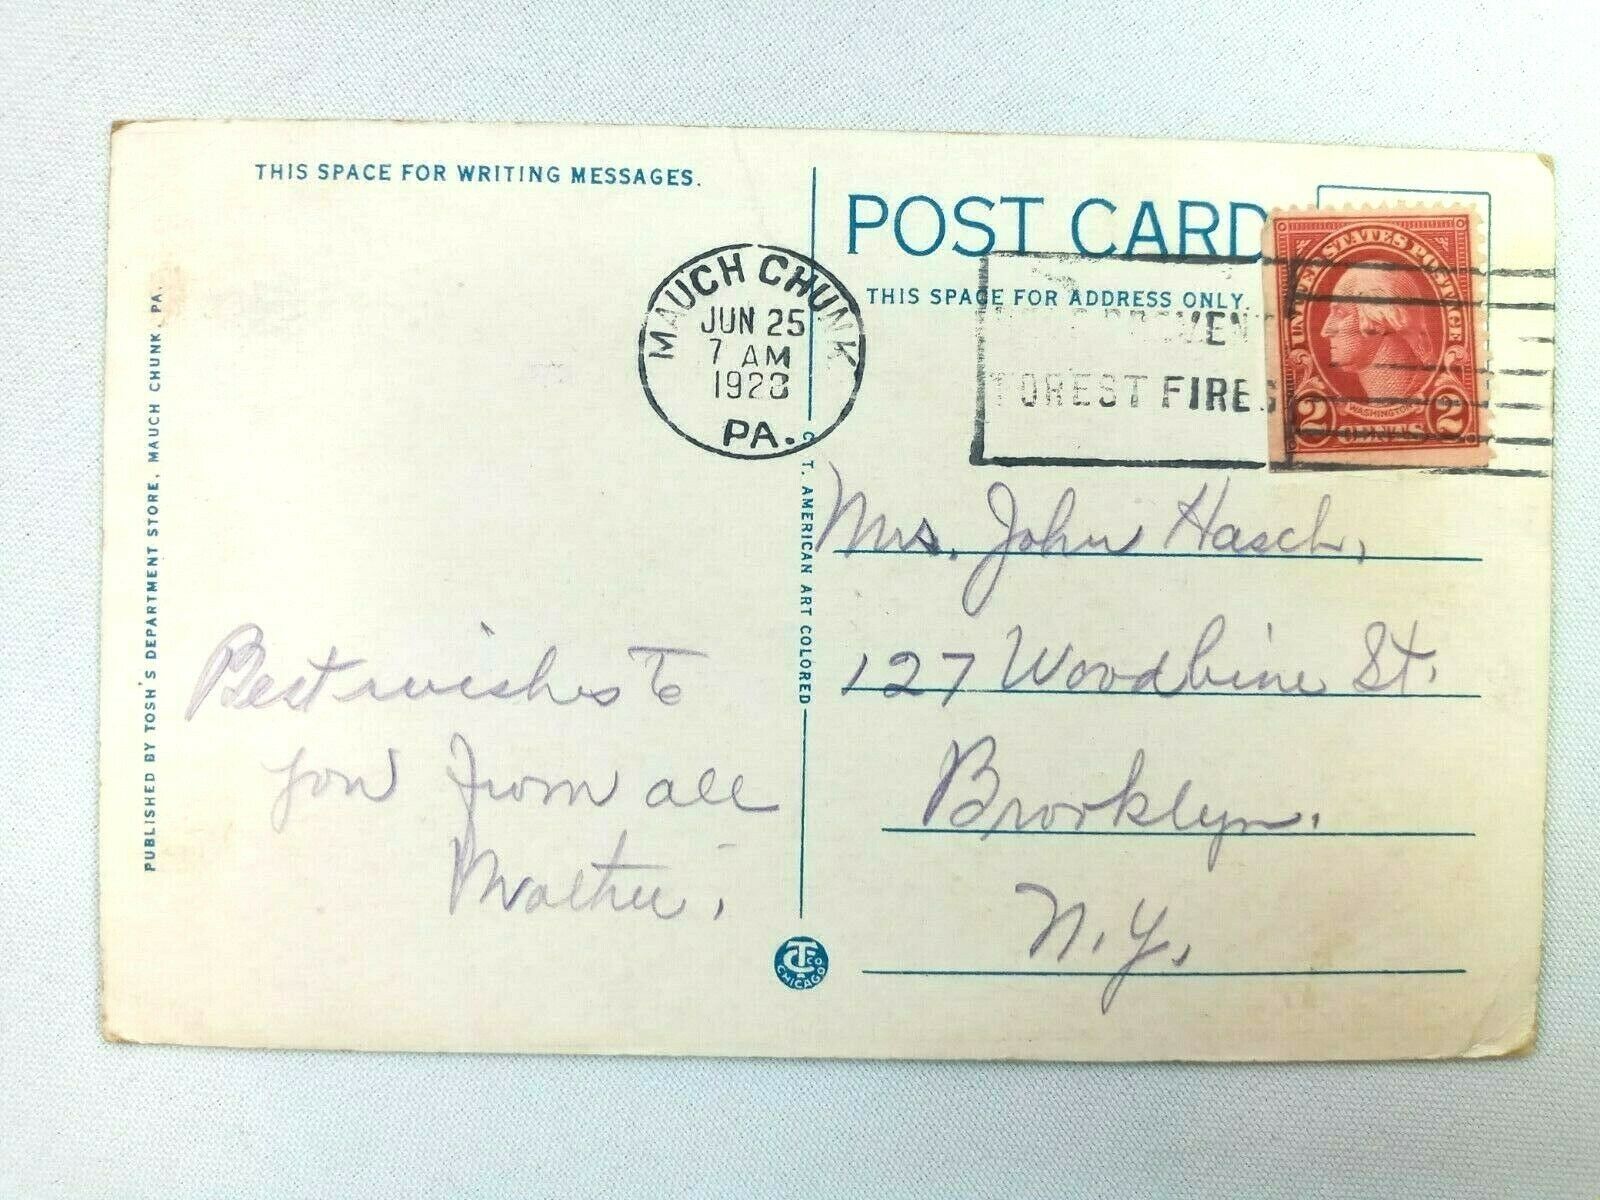 THIS SPACE FOR WRITING MESSAGES.
POST CARD
THIS SPACE FOR ADDRESS ONLY.
MAUCH CHUNK
JUN 25
7 AM
1928
PA.
PREVENT
FOREST FIRES
UNITED STATES POSTAGE
WASHINGTON
2 CENTS 2
PUBLISHED BY TOSH'S DEPARTMENT STORE, MAUCH CHUNK, PA.
C. T. AMERICAN ART COLORED
Mrs. John Hasch,
127 Woodbine St.
Brooklyn.
N.Y.
Best wishes to
you from all
CTCO
CHICAGO